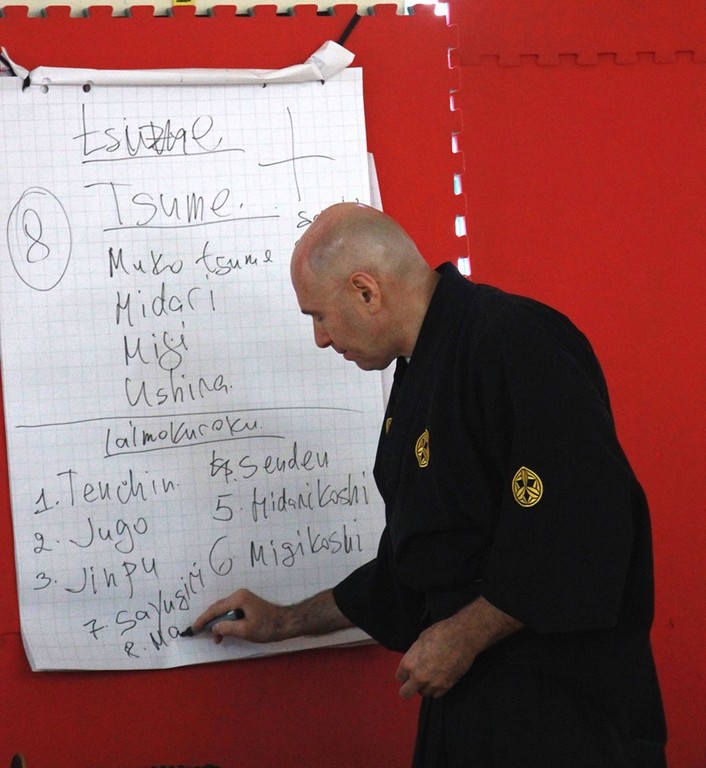 Tsume.
8
Muko tsume
Midari
Migi
Ushira.
1. Tenchin.
2. Jugo
3. Jinpu
4. Senden
5. Hidarikoshi
6 Migikoshi
7. Sayugiri
8. Ma